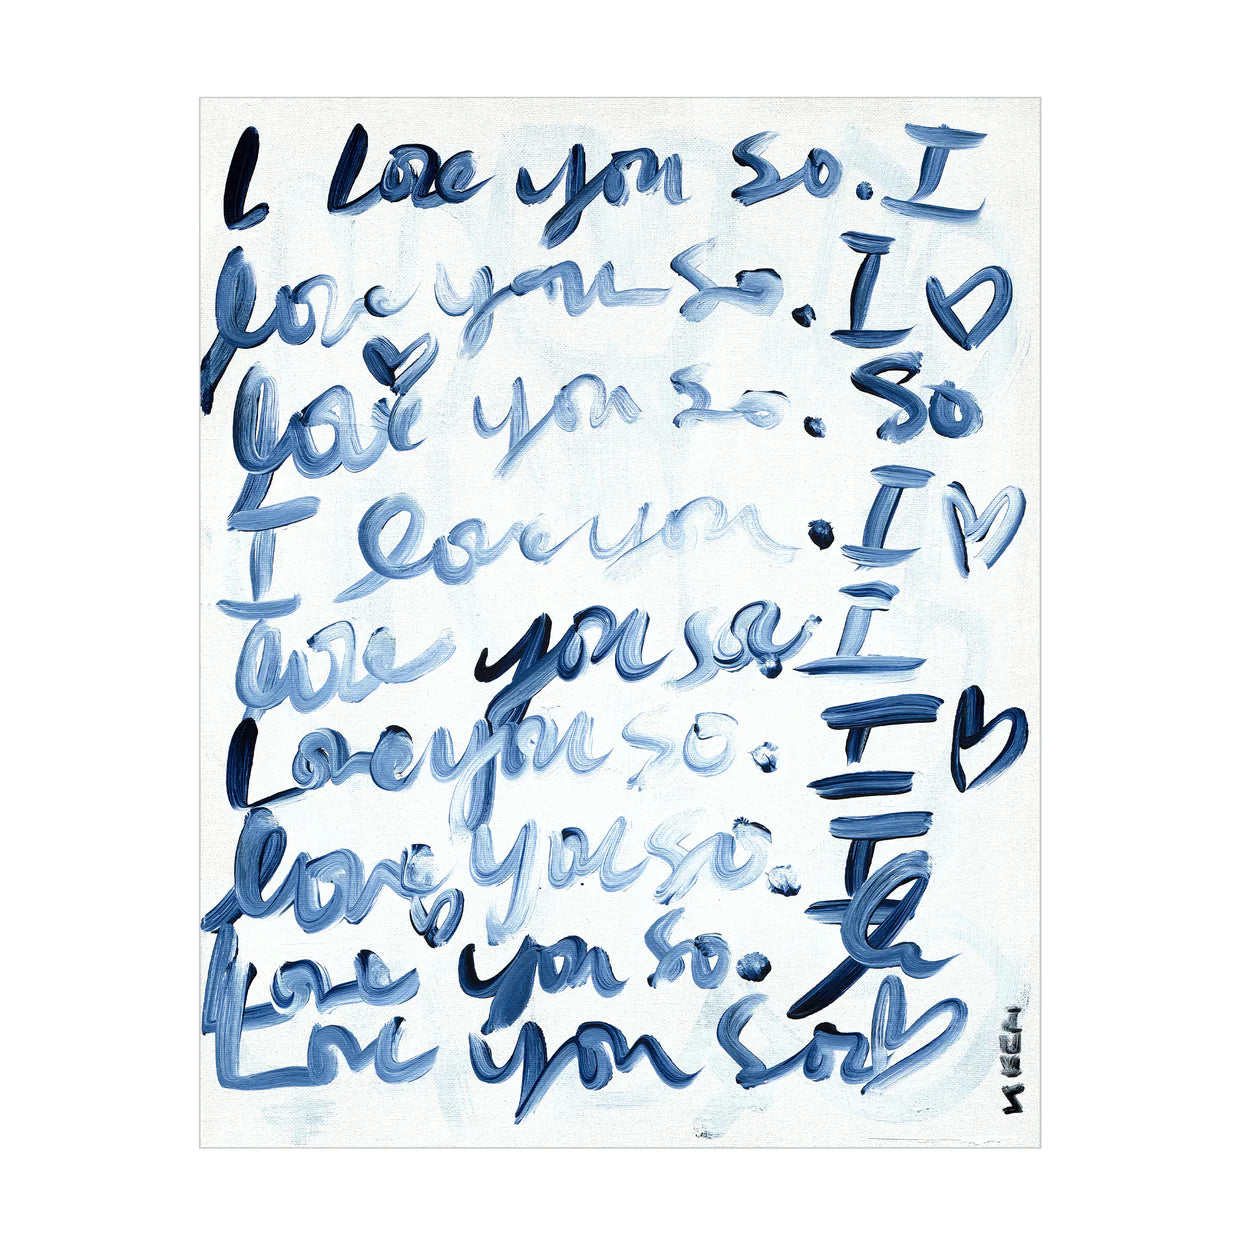 I Love you so. I
love you so. I ♡
love you so. So
I love you. I ♡
love you so. I
Love you so. I ♡
love you so. I
Love you so.
Love you so ♡